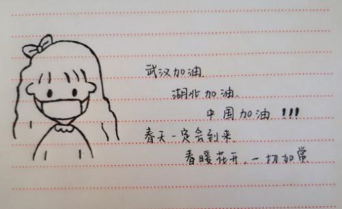 武汉加油
湖北加油.
中国加油!!!
春天一定会到来.
春暖花开.一切如常